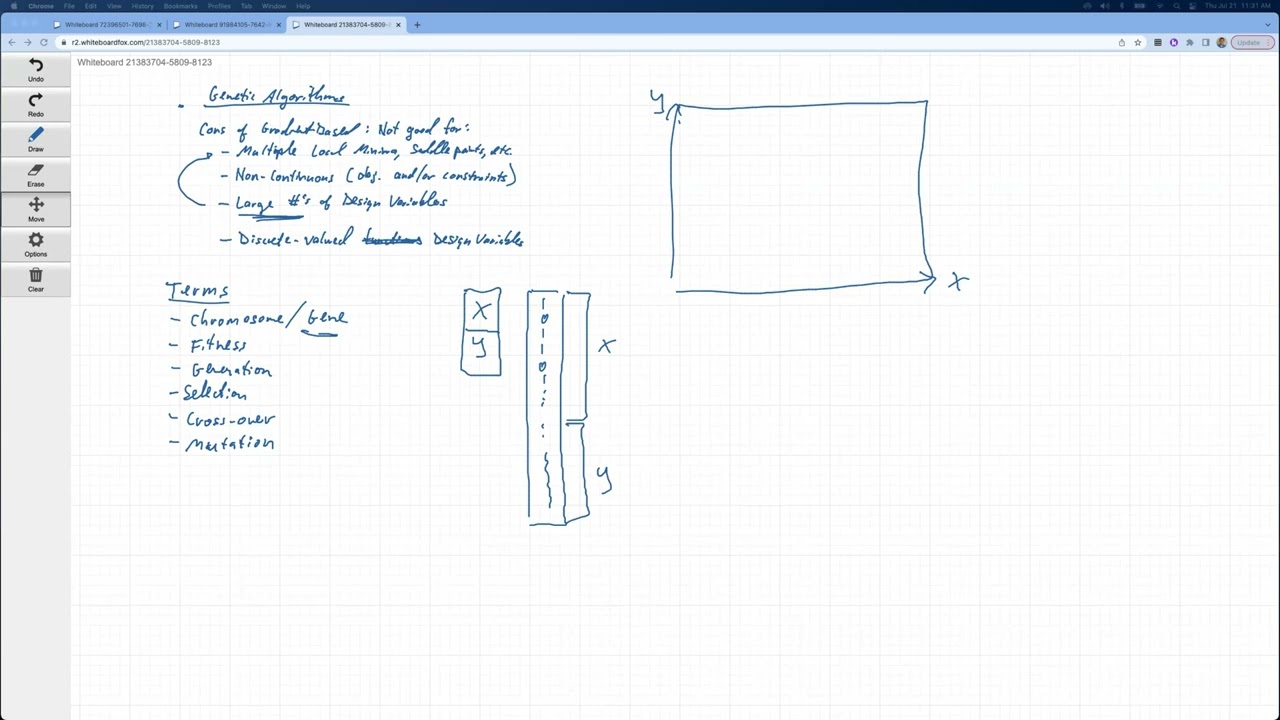 Chrome File Edit View History Bookmarks Profiles Tab Window Help Thu Jul 21 11:31 AM
Whiteboard 72396501-7696- Whiteboard 91984105-7642- Whiteboard 21383704-5809-
r2.whiteboardfox.com/21383704-5809-8123 Update
Whiteboard 21383704-5809-8123
Undo
Redo
Draw
Erase
Move
Options
Clear
Genetic Algorithms
Cons of Gradient Based: Not good for:
- Multiple Local Minima, Saddle points, etc.
- Non-Continuous (obj. and/or constraints)
- Large #'s of Design Variables
- Discrete-valued functions Design Variables
Terms
- Chromosome/Gene
- Fitness
- Generation
- Selection
- Cross-over
- Mutation
X
y
1
0
1
1
0
1
X
y
y
X